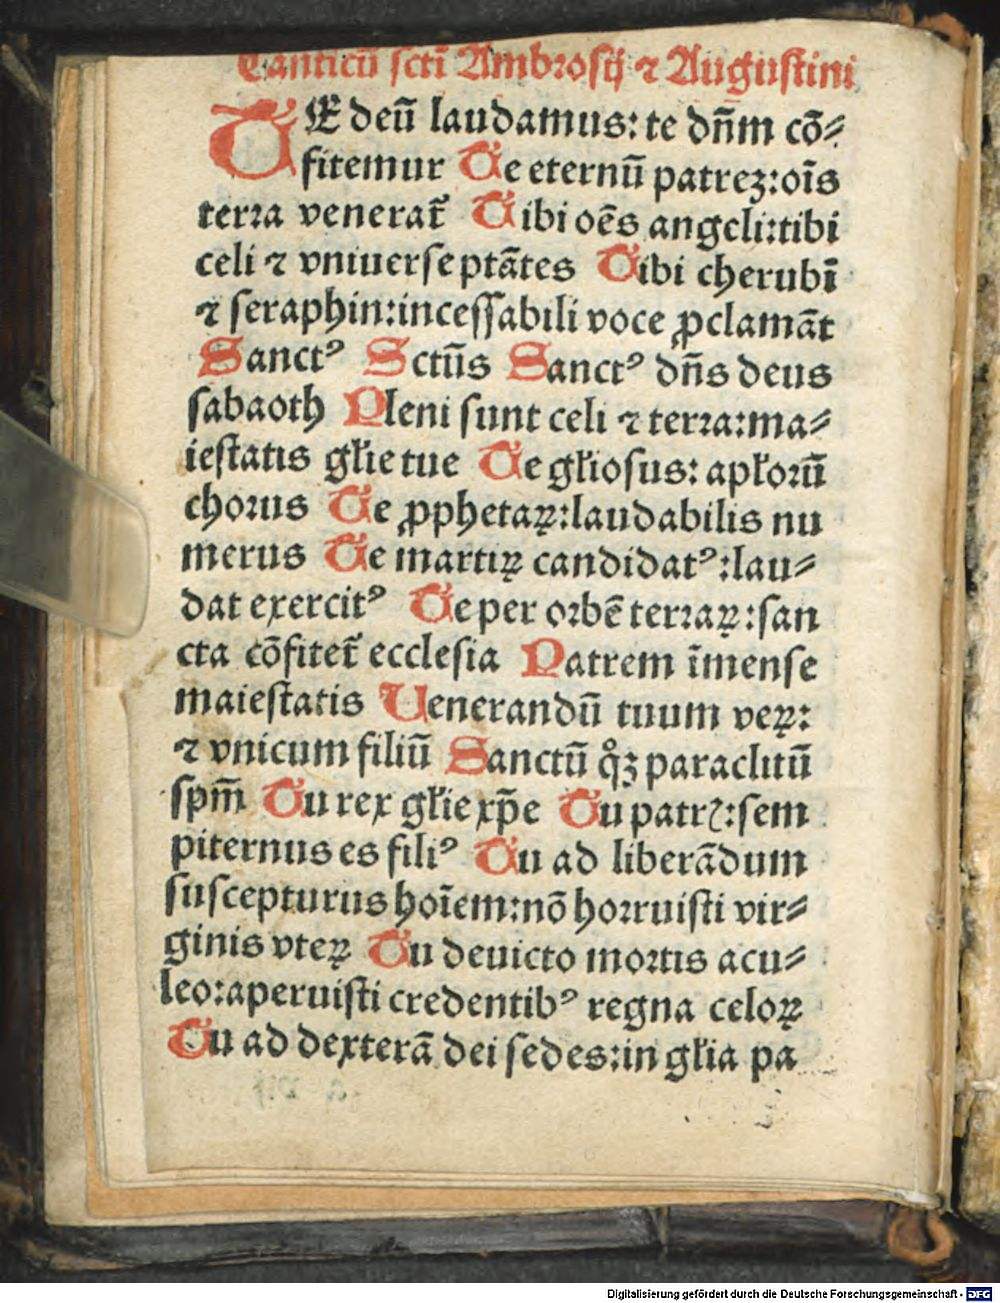 Canticū sctī Ambrosij ⁊ Augustini
TE deū laudamus: te dn̄m cō⸗
fitemur Te eternū patreꝫ: oīs
terra venerat᷑ Tibi oēs angeli: tibi
celi ⁊ vniuerse ptātes Tibi cherubī
⁊ seraphin: incessabili voce ꝓclamāt
Sanctꝰ Sctūs Sanctꝰ dn̄s deus
sabaoth Pleni sunt celi ⁊ terra: ma⸗
iestatis gl̄ie tue Te gl̄iosus: apl̄orū
chorus Te ꝓphetaꝝ: laudabilis nu
merus Te martiꝝ candidatꝰ: lau⸗
dat exercitꝰ Te per orbē terraꝝ: san
cta cōfitet᷑ ecclesia Patrem īmense
maiestatis Uenerandū tuum veꝝ:
⁊ vnicum filiū Sanctū qͦꝫ paraclitū
spm̄ Tu rex gl̄ie xp̄e Tu patrꝭ: sem
piternus es filiꝰ Tu ad liberādum
suscepturus hoīem: nō horruisti vir⸗
ginis vteꝝ Tu deuicto mortis acu⸗
leo: aperuisti credentibꝰ regna celoꝝ
Tu ad dexterā dei sedes: in gl̄ia pa
Digitalisierung gefördert durch die Deutsche Forschungsgemeinschaft - DFG